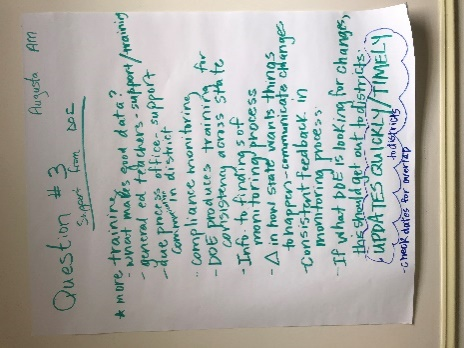 Augusta AM
Question #3
Support from DOE
* more training
- what makes good data?
- general ed teachers - support/training
- due process office - support
in district
- compliance monitoring
- DOE produces training for
consistency across state
- Info to findings of
monitoring process
- Δ in how state wants things
to happen - communicate changes
- Consistent feedback in
monitoring process
- If what DOE is looking for changes,
the should get out to districts.
UPDATES QUICKLY/TIMELY
to districts
- check dates for overlap